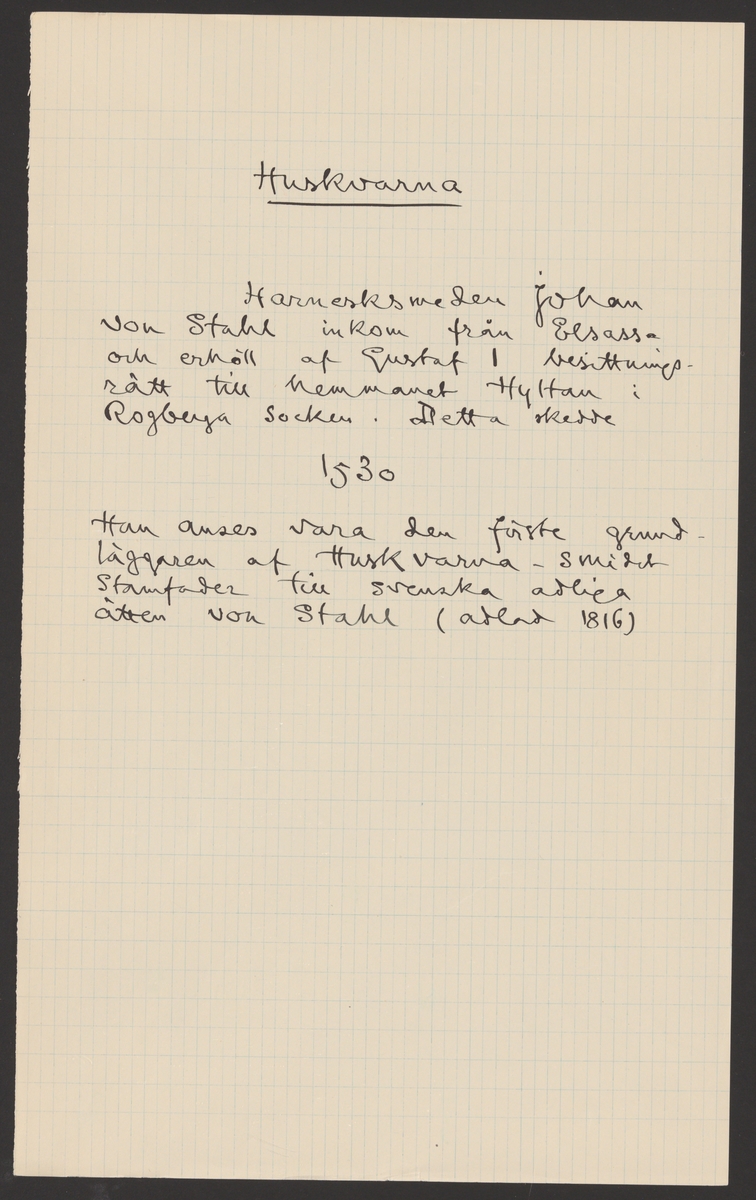 Huskvarna
Harnesksmeden Johan
von Stahl inkom från Elsass
och erhöll af Gustaf I besittnings-
rätt till hemmanet Hyltan i
Rogberga Socken. Detta skedde
1530
Han anses vara den förste grund-
läggaren af Huskvarna-smidet
Stamfader till svenska adliga
ätten von Stahl (adlad 1816)